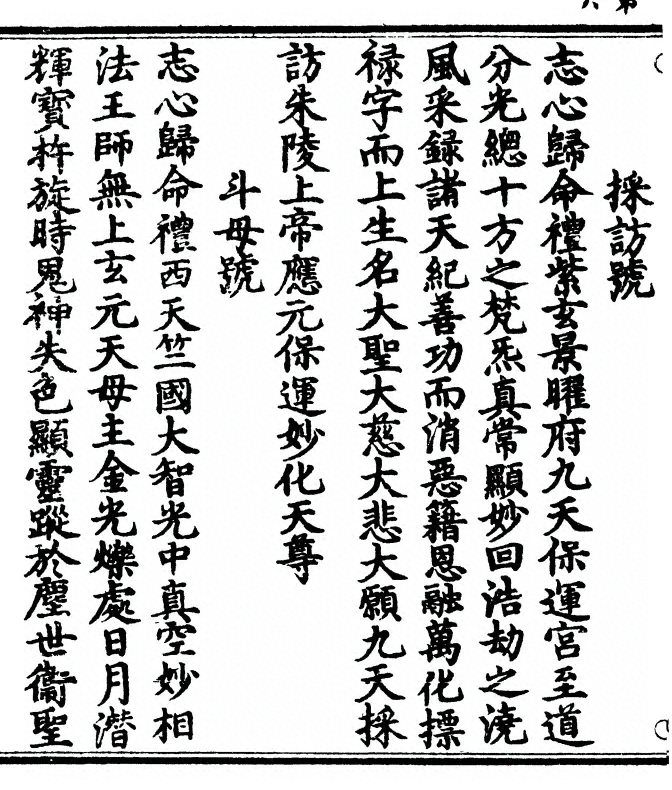 第六
採訪號
志心歸命禮紫玄景曜府九天保運宮至道
分光總十方之梵炁真常顯妙回浩劫之澆
風采録諸天紀善功而消惡籍恩融萬化摽
禄字而上生名大聖大慈大悲大願九天採
訪朱陵上帝應元保運妙化天尊
斗母號
志心歸命禮西天竺國大智光中真空妙相
法王師無上玄元天母主金光爍處日月潛
輝寶杵旋時鬼神失色顯靈蹤於塵世衞聖